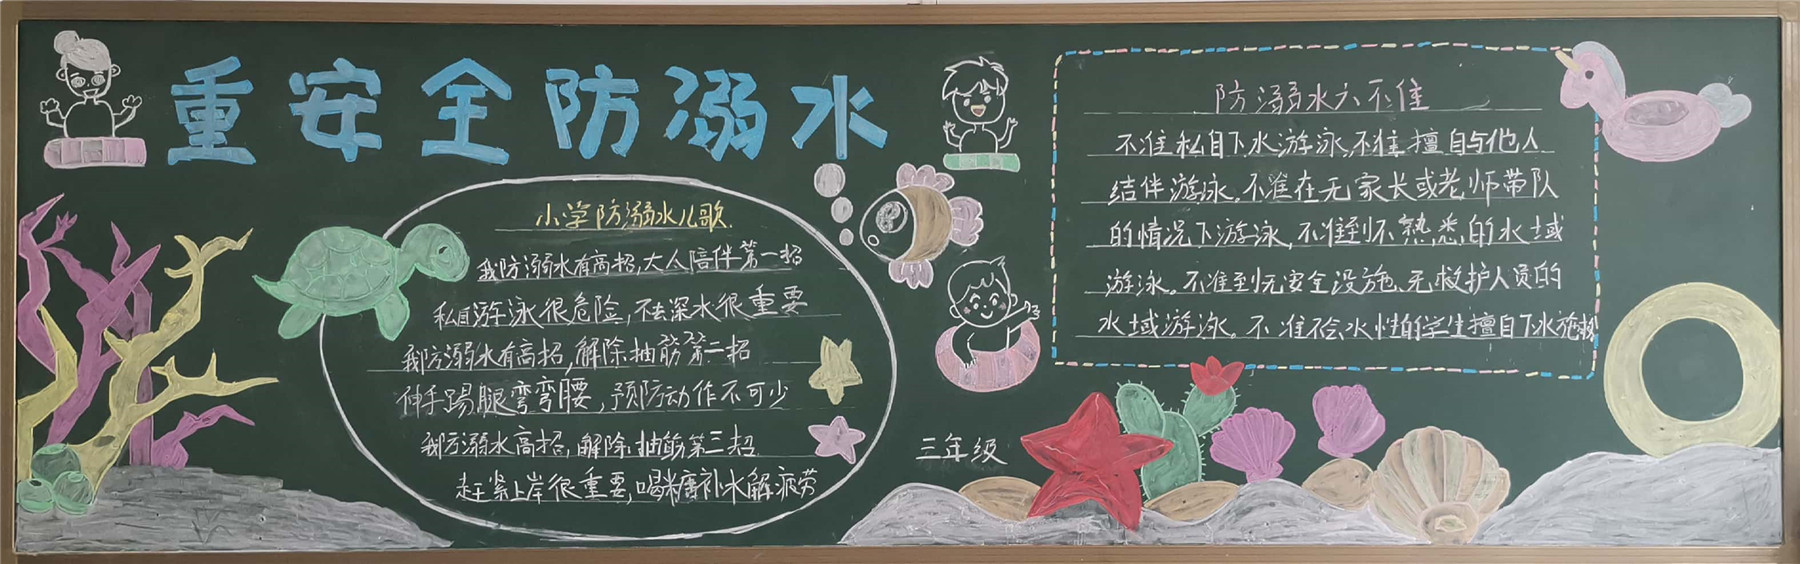 重安全防溺水
小学防溺水儿歌
我防溺水有高招,大人陪伴第一招
私自游泳很危险,不去深水很重要
我防溺水有高招,解除抽筋第二招
伸手踢腿弯弯腰,预防动作不可少
我防溺水高招,解除抽筋第三招
赶紧上岸很重要,喝糖补水解疲劳
三年级
防溺水六不准
不准私自下水游泳,不准擅自与他人
结伴游泳,不准在无家长或老师带队
的情况下游泳,不准到不熟悉的水域
游泳。不准到无安全设施、无救护人员的
水域游泳。不准不会水性的学生擅自下水施救